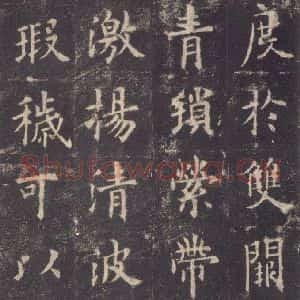 度於雙闕
青瑣縈帶
激揚清波
瑕穢可以
Shufawang.cn